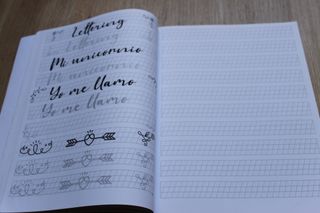 Lettering
Lettering
Mi unicornio
Mi unicornio
Yo me llamo
Yo me llamo